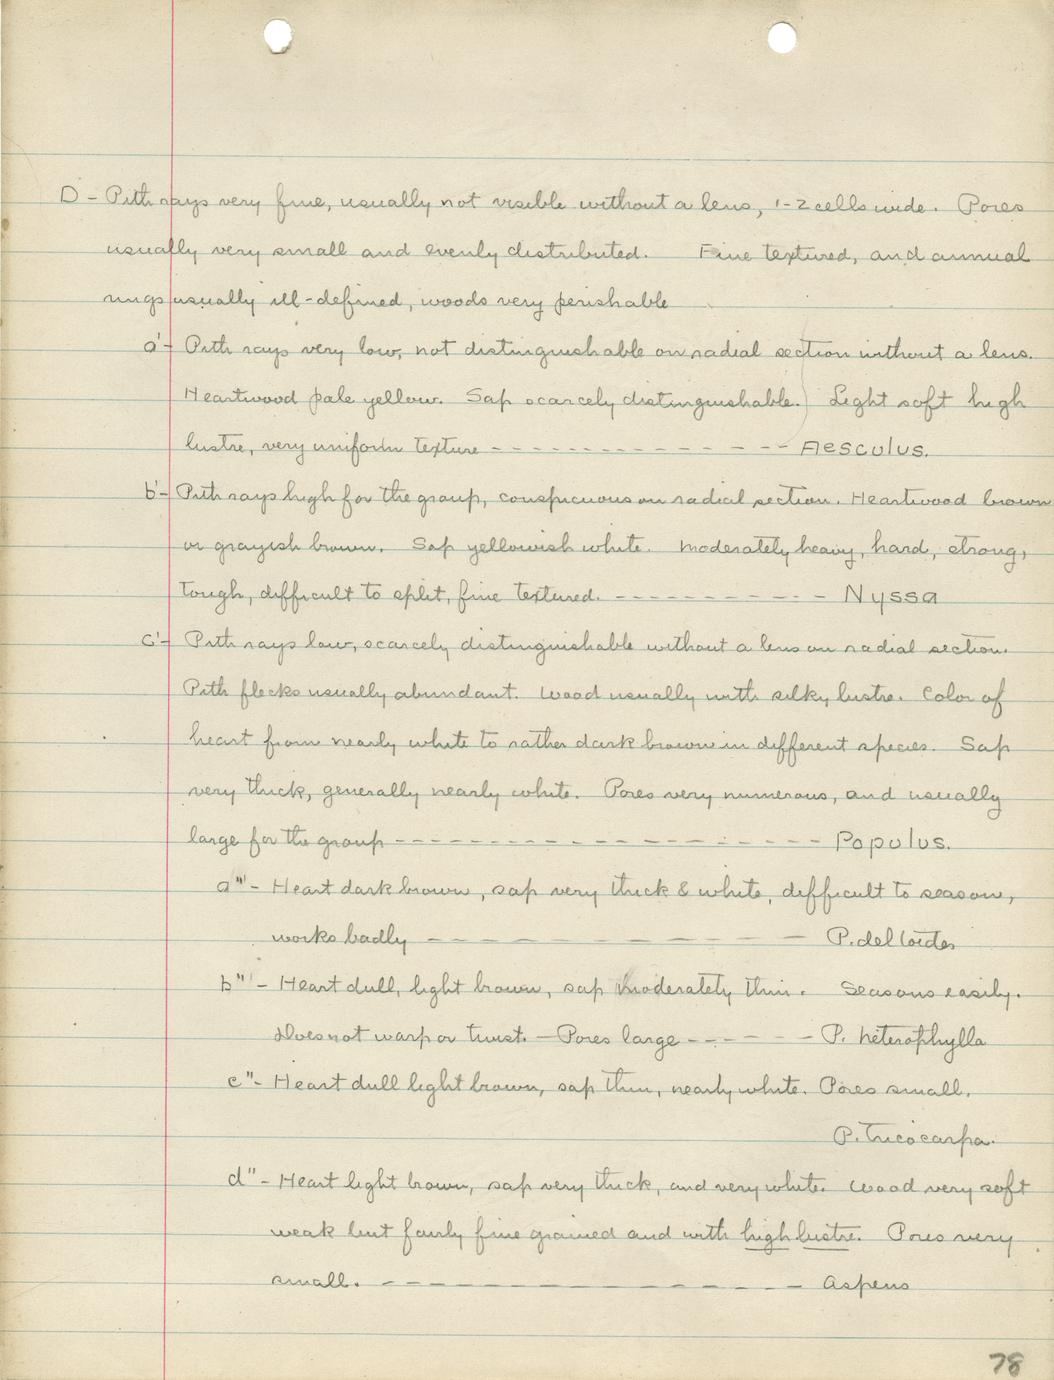 D - Pith rays very fine, usually not visible without a lens, 1-2 cells wide. Pores
usually very small and evenly distributed. Fine textured, and annual
rings usually ill-defined, woods very perishable
a' - Pith rays very low, not distinguishable on radial section without a lens.
Heartwood pale yellow. Sap scarcely distinguishable.) Light soft high
lustre, very uniform texture - - - - - - - - - - - - Aesculus.
b' - Pith rays high for the group, conspicuous on radial section. Heartwood brown
or grayish brown. Sap yellowish white. Moderately heavy, hard, strong,
tough, difficult to split, fine textured. - - - - - - - - - - Nyssa
c' - Pith rays low, scarcely distinguishable without a lens on radial section.
Pith flecks usually abundant. Wood usually with silky lustre. Color of
heart from nearly white to rather dark brown in different species. Sap
very thick, generally nearly white. Pores very numerous, and usually
large for the group - - - - - - - - - - - - - - - - Populus.
a" - Heart dark brown, sap very thick & white, difficult to season,
works badly - - - - - - - - - - P. deltoides
b" - Heart dull, light brown, sap moderately thin. Seasons easily.
Does not warp or twist. - Pores large - - - - - - P. heterophylla
c" - Heart dull light brown, sap thin, nearly white. Pores small.
P. tricocarpa.
d" - Heart light brown, sap very thick, and very white. Wood very soft
weak but fairly fine grained and with high lustre. Pores very
small. - - - - - - - - - - - - - - Aspens
78